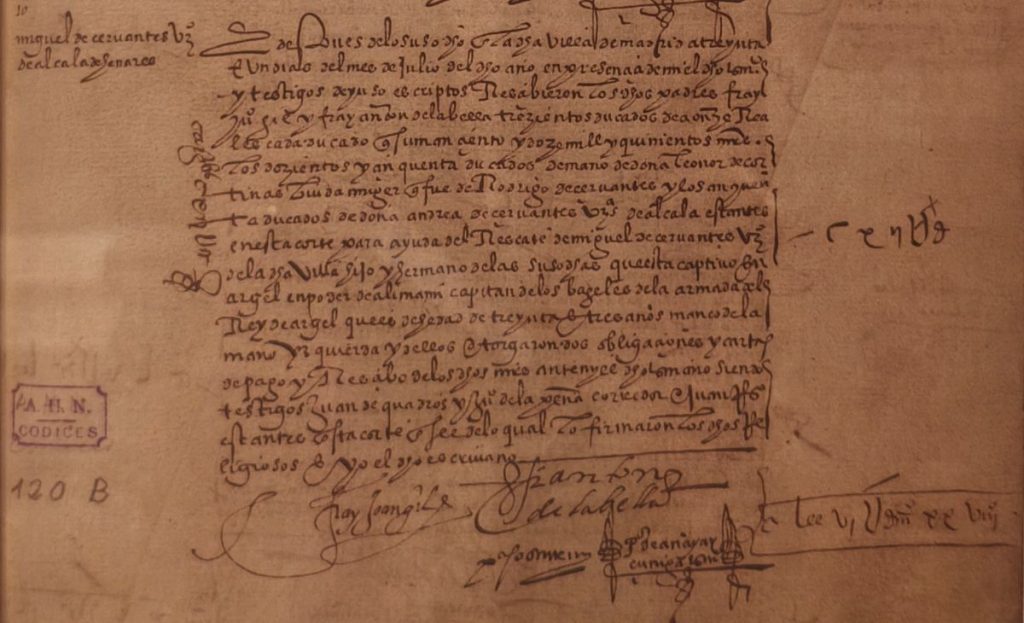 miguel de cervantes Vzº
de alcala de henares
Despues de lo suso dho En la dha villa de madrid a treynta
E un dias del mes de Julio del dho año en presencia de mi el dho
y testigos de yuso escriptos Resçibieron los dhos padres fray
Juº gil y fray anton de la bella trezientos ducados de a onze Rea
les cada ducado q suman çiento y doze mill y quinientos mrs
los dozientos y çinquenta ducados de mano de doña leonor de cor
tinas biuda muger q fue de Rodrigo de cervantes y los çinquen
ta ducados de doña andrea de cervantes vzºs de alcala estantes
en esta corte para ayuda del Rescate de miguel de cervantes vzº
de la dha villa hijo y hermano de las susodhas que esta captivo En
argel en poder de alimami capitan de los bageles de la armada del
Rey de argel que es de hedad de treynta E tres años manco de la
mano yzquierda y dellos Otorgaron dos obligaçiones y cartas
de pago y Resçibo de los dhos mrs ante my el dho siendo
testigos Juan de quadros y Juº de la peña corredor E Juan
estantes en esta corte E fee de lo qual lo firmaron los dhos Re
ligiosos E yo el dho escrivano
fray Joan gil
fr anton
de la bella
paso ante my
pº de anaya y
çuñiga
A. H. N.
CODICES
120 B